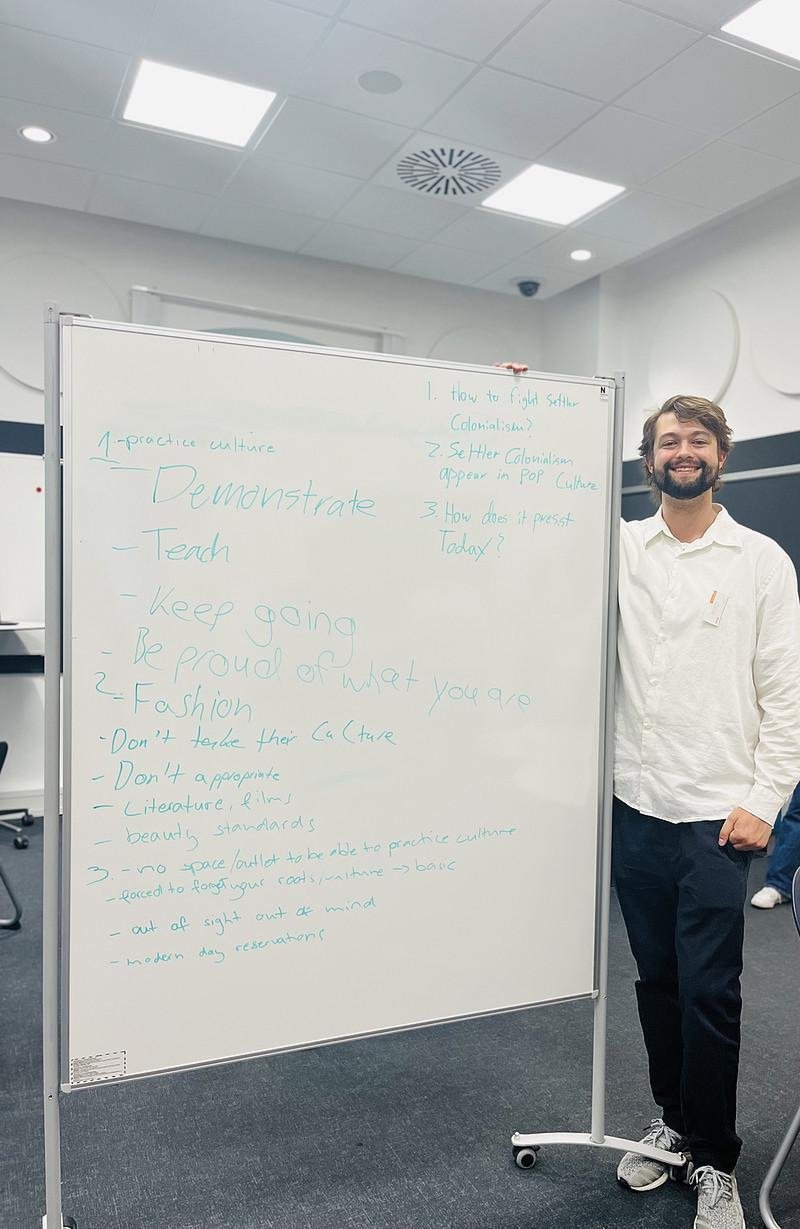 1. How to fight Settler
Colonialism?
2. Settler Colonialism
appear in POP Culture
3. How does it presist
Today?
1.-practice culture
- Demonstrate
- Teach
- Keep going
- Be proud of what you are
2.- Fashion
- Don't take their Culture
- Don't appropriate
- Literature, films
- beauty standards
3. - no space/outlet to be able to practice culture
- forced to forget your roots/culture → basic
- out of sight out of mind
- modern day reservations
N